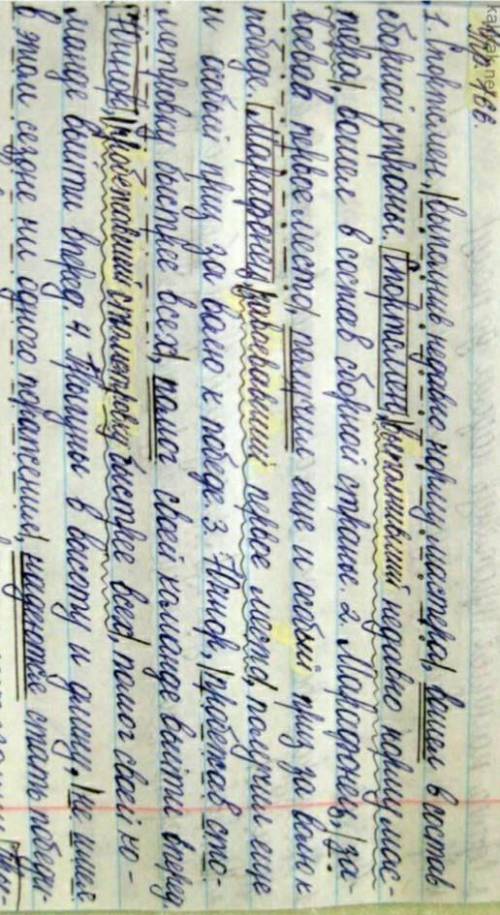 Упр. 166.
1. Спортсмен, выполнив недавно норму мастера, вошел в состав
сборной страны. Спортсмен, выполнивший недавно норму мас-
тера, вошел в состав сборной страны. 2. Марафонец, за-
воевав первое место, получил еще и особый приз за волю к
победе. Марафонец, завоевавший первое место, получил еще
и особый приз за волю к победе. 3. Юниор, пробежав сто-
метровку быстрее всех, помог своей команде выйти вперед.
Юниор, пробежавший стометровку быстрее всех, помог своей ко-
манде выйти вперед. 4. Прыгуны в высоту и длину, не имея
в этом сезоне ни одного поражения, надеются стать победи-